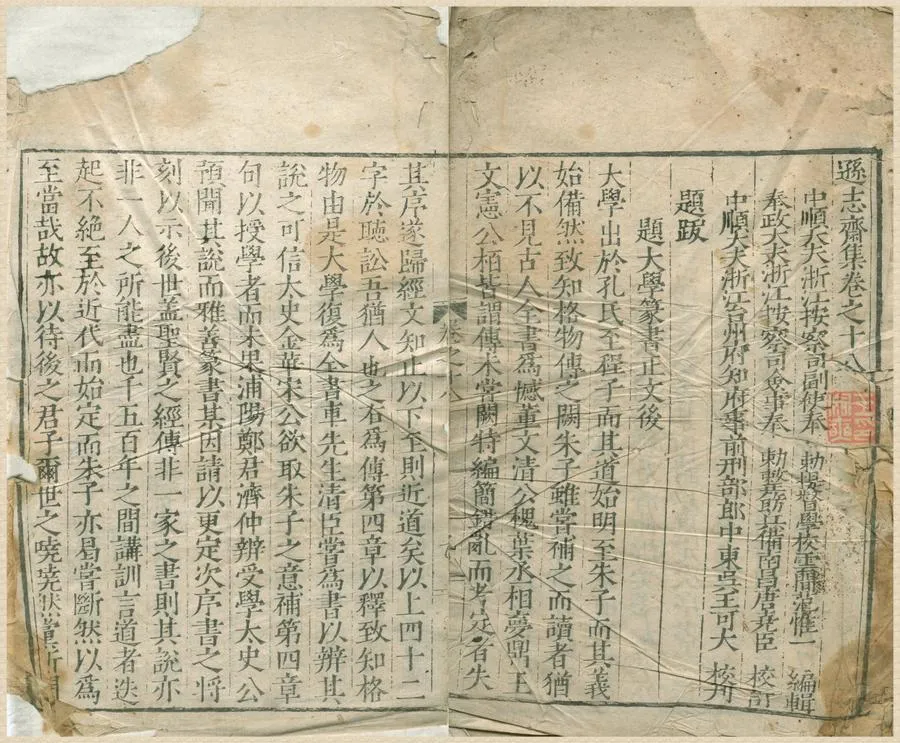 遜志齋集卷之十八
中順大夫浙江按察司副使奉 勅提督學校雲間范惟一 編輯
奉政大夫浙江按察司僉事奉 勅整飭兵備南昌唐堯臣 校訂
中順大夫浙江台州府知府事前刑部郎中東吳王可大 校刊
題跋
題大學篆書正文後
大學出於孔氏至程子而其道始明至朱子而其義
始備然致知格物傳之闕朱子雖嘗補之而讀者猶
以不見古人全書為憾董文清公槐葉丞相夢鼎王
文憲公栢皆謂傳未嘗闕特編簡錯亂而考定者失
其序遂歸經文知止以下至則近道矣以上四十二
字於聽訟吾猶人也之右為傳第四章以釋致知格
物由是大學復為全書車先生清臣嘗為書以辨其
說之可信太史金華宋公欲取朱子之意補第四章
句以授學者而未果浦陽鄭君濟仲辨受學太史公
預聞其說而雅善篆書某因請以更定次序書之將
刻以示後世盖聖賢之經傳非一家之書則其說亦
非一人之所能盡也千五百年之間講訓言道者迭
起不絕至於近代而始定而朱子亦曷嘗斷然以為
至當哉故亦以待後之君子爾世之曉曉然黨所聞
卷之十八